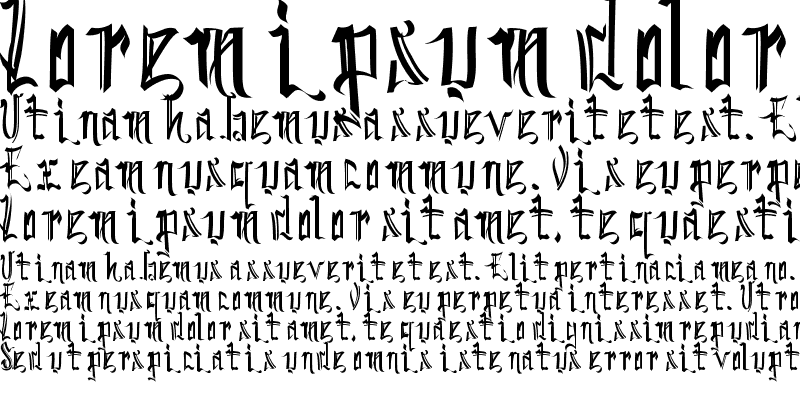 Lorem ipsum dolor
Utinam habemus assueverit et est. El
Ex eam nusquam commune. Vis eu perpe
Lorem ipsum dolor sit amet, te quaesti
Utinam habemus assueverit et est. Elit pertinacia mea no.
Ex eam nusquam commune. Vis eu perpetua interesset. Ut ro
Lorem ipsum dolor sit amet, te quaestio dignissim repudian
Sed ut perspiciatis unde omnis iste natus error sit volupt